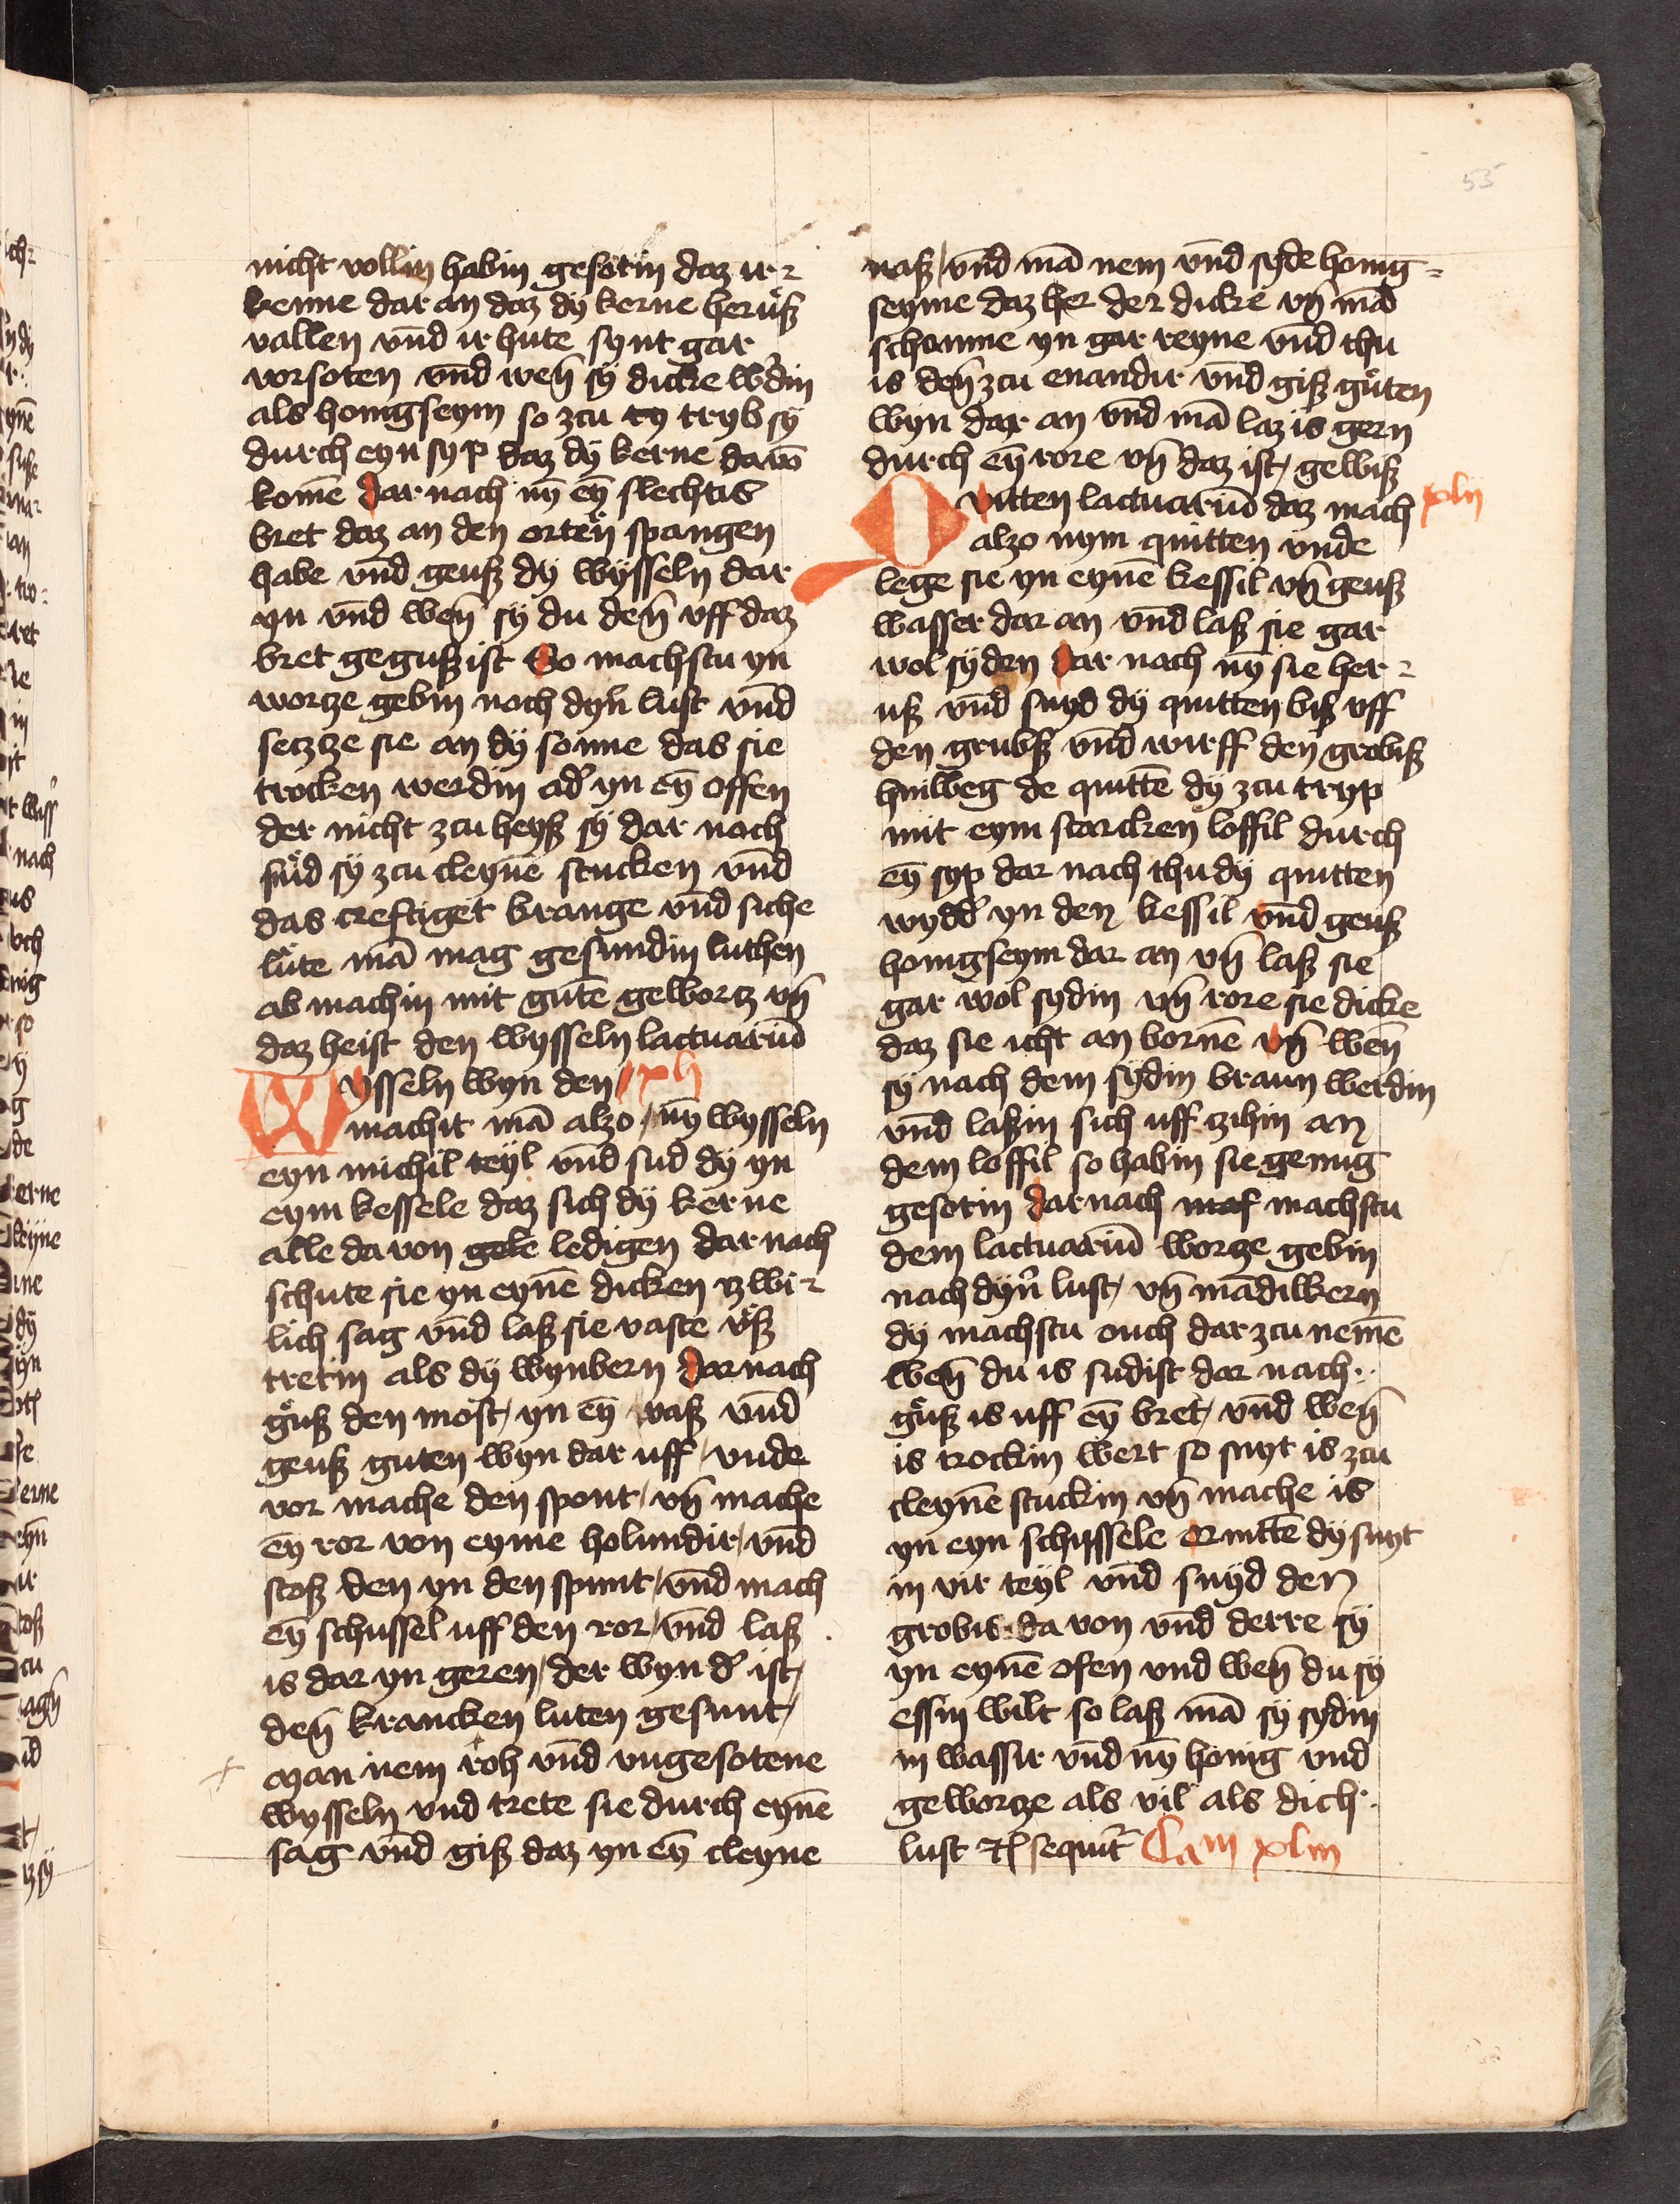 55
nicht vollin habin gesotin daz ir-
kenne dar an daz dÿ kerne herůß
vallen vn̄d ir hute synt gar
vorsoten vn̄d wen̄ sÿ dicke w'din
als honigseym so zcu ry tryb sÿ
durch eyn syp daz dÿ kerne davō
komē dar nach nȳ eȳ slechtis
bret daz an den orten spangen
habe vn̄d geuß dÿ wysseln dar
yn vn̄d wen̄ sÿ du den̄ vff daz
bret geguß ist So machstu yn
wortze gebin noch dyn̄ lust vn̄d
setztze sie an dÿ sonne das sie
trocken werdin ad' yn eȳ offen
der nicht zcu heyß sÿ dar noch
snıd sÿ zcu cleynē stucken vn̄d
das creftiget krange vn̄d siche
lůte mā mag gesundin luthen
ab machin mit gutē gewortz vn̄
daz heist den wysseln lactuariū
Wysseln wyn den xlj
machit mā alzo / nȳ wysseln
eyn michil teyl vn̄d sud dÿ yn
eym kessele daz sich dÿ kerne
alle da von gele ledigen dar nach
schute sie yn eynē dicken tzwi-
lich sag vn̄d laß sie vaste ůß
tretin als dÿ wynbern dar nach
gůß den most / yn eȳ vaß vn̄d
geuß guten wyn dar uff / vnde
vor mache den spont / vn̄ mache
eȳ ror von eyme holundir / vn̄d
stoß den yn den spunt / vn̄d mach
eȳ schussel uff den ror / vn̄d laß
is dar yn geren / der wyn d' ist /
den̄ krancken luten gesunt /
Man nem roh vn̄d vngesotene
wysseln vnd trete sie durch eynē
sag vn̄d giß daz yn eȳ cleyne
vaß / vn̄d mā nem vn̄d syde honig-
seyme daz her der dicke vn̄ mā
schoume yn gar reyne vn̄d thu
is den̄ zcu enandir vn̄d giß gůten
wyn dar an vn̄d mā laz is gern
durch eȳ rore vn̄ daz ist / gewiß
Quitten lactuariū daz mach xlij
alzo nym quitten vnde
lege sie yn eynē kessil vn̄ geuß
wasser dar an vn̄d laß sie gar
wol syden dar nach nȳ sie her-
uß vn̄d snyd dÿ quitten biß vff
den grubß vn̄d wirff den grobiß
hinweg de quittē dÿ zcu tryp
mit eym starcken loffil durch
eȳ syp dar nach thu dÿ quitten
wydd' yn den kessil vn̄d geuß
honigseym dar an vn̄ laß sie
gar wol sydin vn̄ rore sie dicke
daz sie icht an bornē vn̄ wen̄
sÿ nach dem sydin braun werdin
vn̄d laßin sich uff tzihin an
dem loffil so habin sie genug
gesotin dar nach maf machstu
dem lactuariū wortze gebin
nach dyn̄ lust / vn̄ mādilkern
dÿ machstu ouch dar zcu nemē
wen̄ du is sudist dar nach
gůß is uff eȳ bret / vn̄d wen̄
is trockin wert so snyt is zcu
cleynē stuckin vn̄ mache is
yn eyn schussele Quittē dÿ snyt
in vir teyl vn̄d snyd den
grobis da von vn̄d derre sÿ
yn eynē ofen vnd wen̄ du sÿ
essin wilt so laß mā sÿ sydin
in wassir vn̄d nȳ honig vnd
gewortze als vil als dich
lust etc sequit̄ Cam xliij